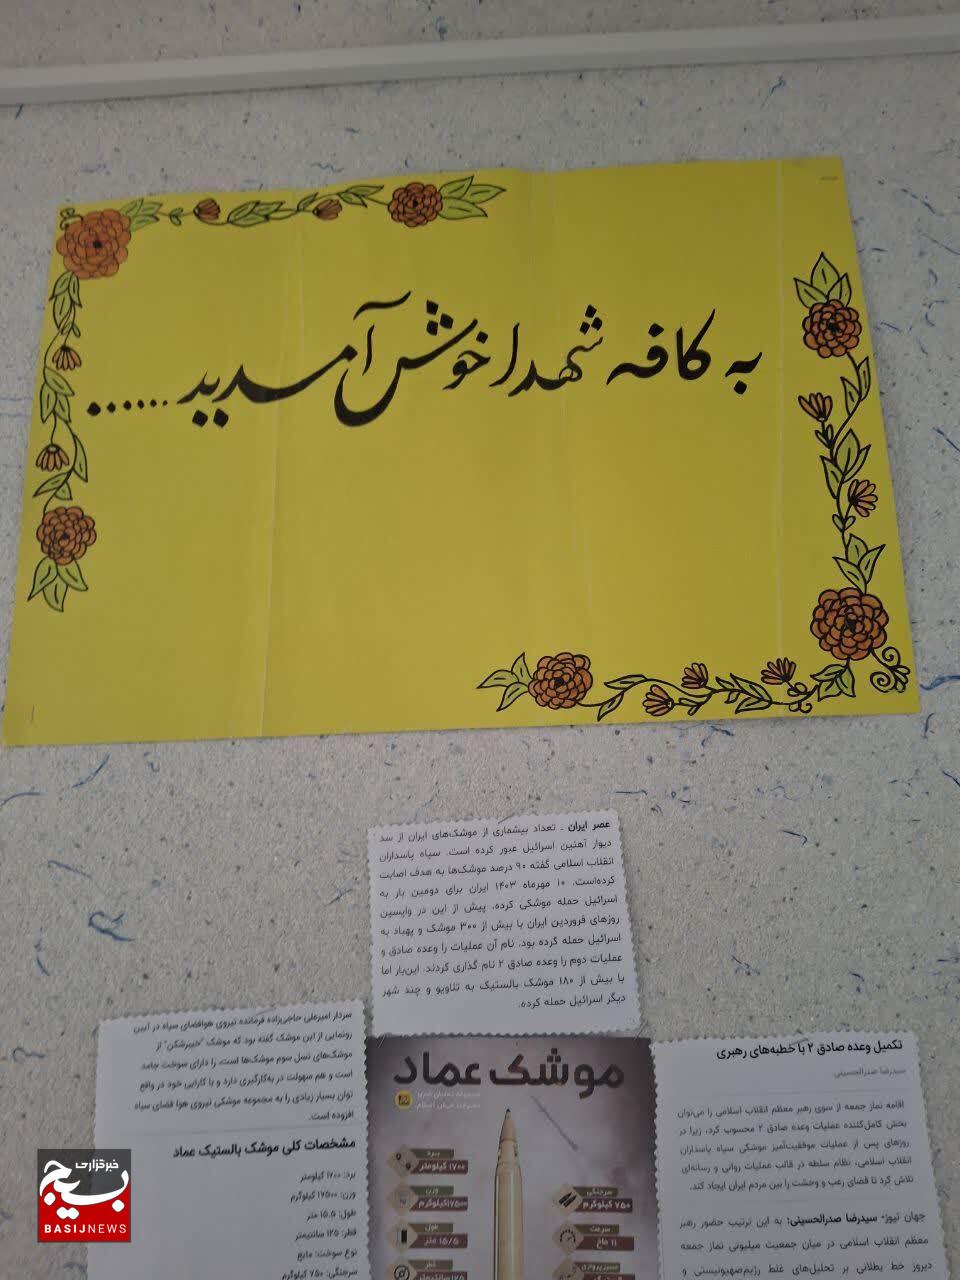 به کافه شهدا خوش آمدید ......
عصر ایران ـ تعداد بیشماری از موشک‌های ایران از سد
دیوار آهنین اسرائیل عبور کرده است. سپاه پاسداران
انقلاب اسلامی گفته ۹۰ درصد موشک‌ها به هدف اصابت
کرده‌است. ۱۰ مهرماه ۱۴۰۳ ایران برای دومین بار به
اسرائیل حمله موشکی کرده. پیش از این در واپسین
روزهای فروردین ایران با بیش از ۳۰۰ موشک و پهپاد به
اسرائیل حمله کرده بود. نام آن عملیات را وعده صادق و
عملیات دوم را وعده صادق ۲ نام گذاری کردند. این‌بار اما
با بیش از ۱۸۰ موشک بالستیک به تلاویو و چند شهر
دیگر اسرائیل حمله کرده.
تکمیل وعده صادق ۲ با خطبه‌های رهبری
سیدرضا صدرالحسینی
اقامه نماز جمعه از سوی رهبر معظم انقلاب اسلامی را می‌توان
بخش کامل‌کننده عملیات وعده صادق ۲ محسوب کرد، زیرا در
روزهای پس از عملیات موفقیت‌آمیز موشکی سپاه پاسداران
انقلاب اسلامی، نظام سلطه در قالب عملیات روانی و رسانه‌ای
تلاش کرد تا فضای رعب و وحشت را بین مردم ایران ایجاد کند.
جهان نیوز- سیدرضا صدرالحسینی: به این ترتیب حضور رهبر
معظم انقلاب اسلامی در میان جمعیت میلیونی نماز جمعه
دیروز خط بطلانی بر تحلیل‌های غلط رژیم‌صهیونیستی و
موشک عماد
برد
۱۷۰۰ کیلومتر
وزن
۱۷۵۰۰کیلوگرم
طول
۱۵/۵ متر
قطر
سرجنگی
۷۵۰ کیلوگرم
سرعت
۱۱ ماخ
سردار امیرعلی حاجی‌زاده فرمانده نیروی هوافضای سپاه در آیین
رونمایی از این موشک گفته بود که موشک "خیبرشکن" از
موشک‌های نسل سوم موشک‌ها است، را دارای سوخت جامد
است و هم سهولت در به‌کارگیری دارد و با کارایی خود در واقع
توان بسیار زیادی را به مجموعه موشکی نیروی هوا فضای سپاه
افزوده است.
مشخصات کلی موشک بالستیک عماد
برد: ۱۷۰۰ کیلومتر
وزن: ۱۷۵۰۰ کیلوگرم
طول: ۱۵.۵ متر
قطر: ۱۲۵ سانتیمتر
نوع سوخت: مایع
سرجنگی: ۷۵۰ کیلوگرم
خبرگزاری
بسیج
BASIJNEWS